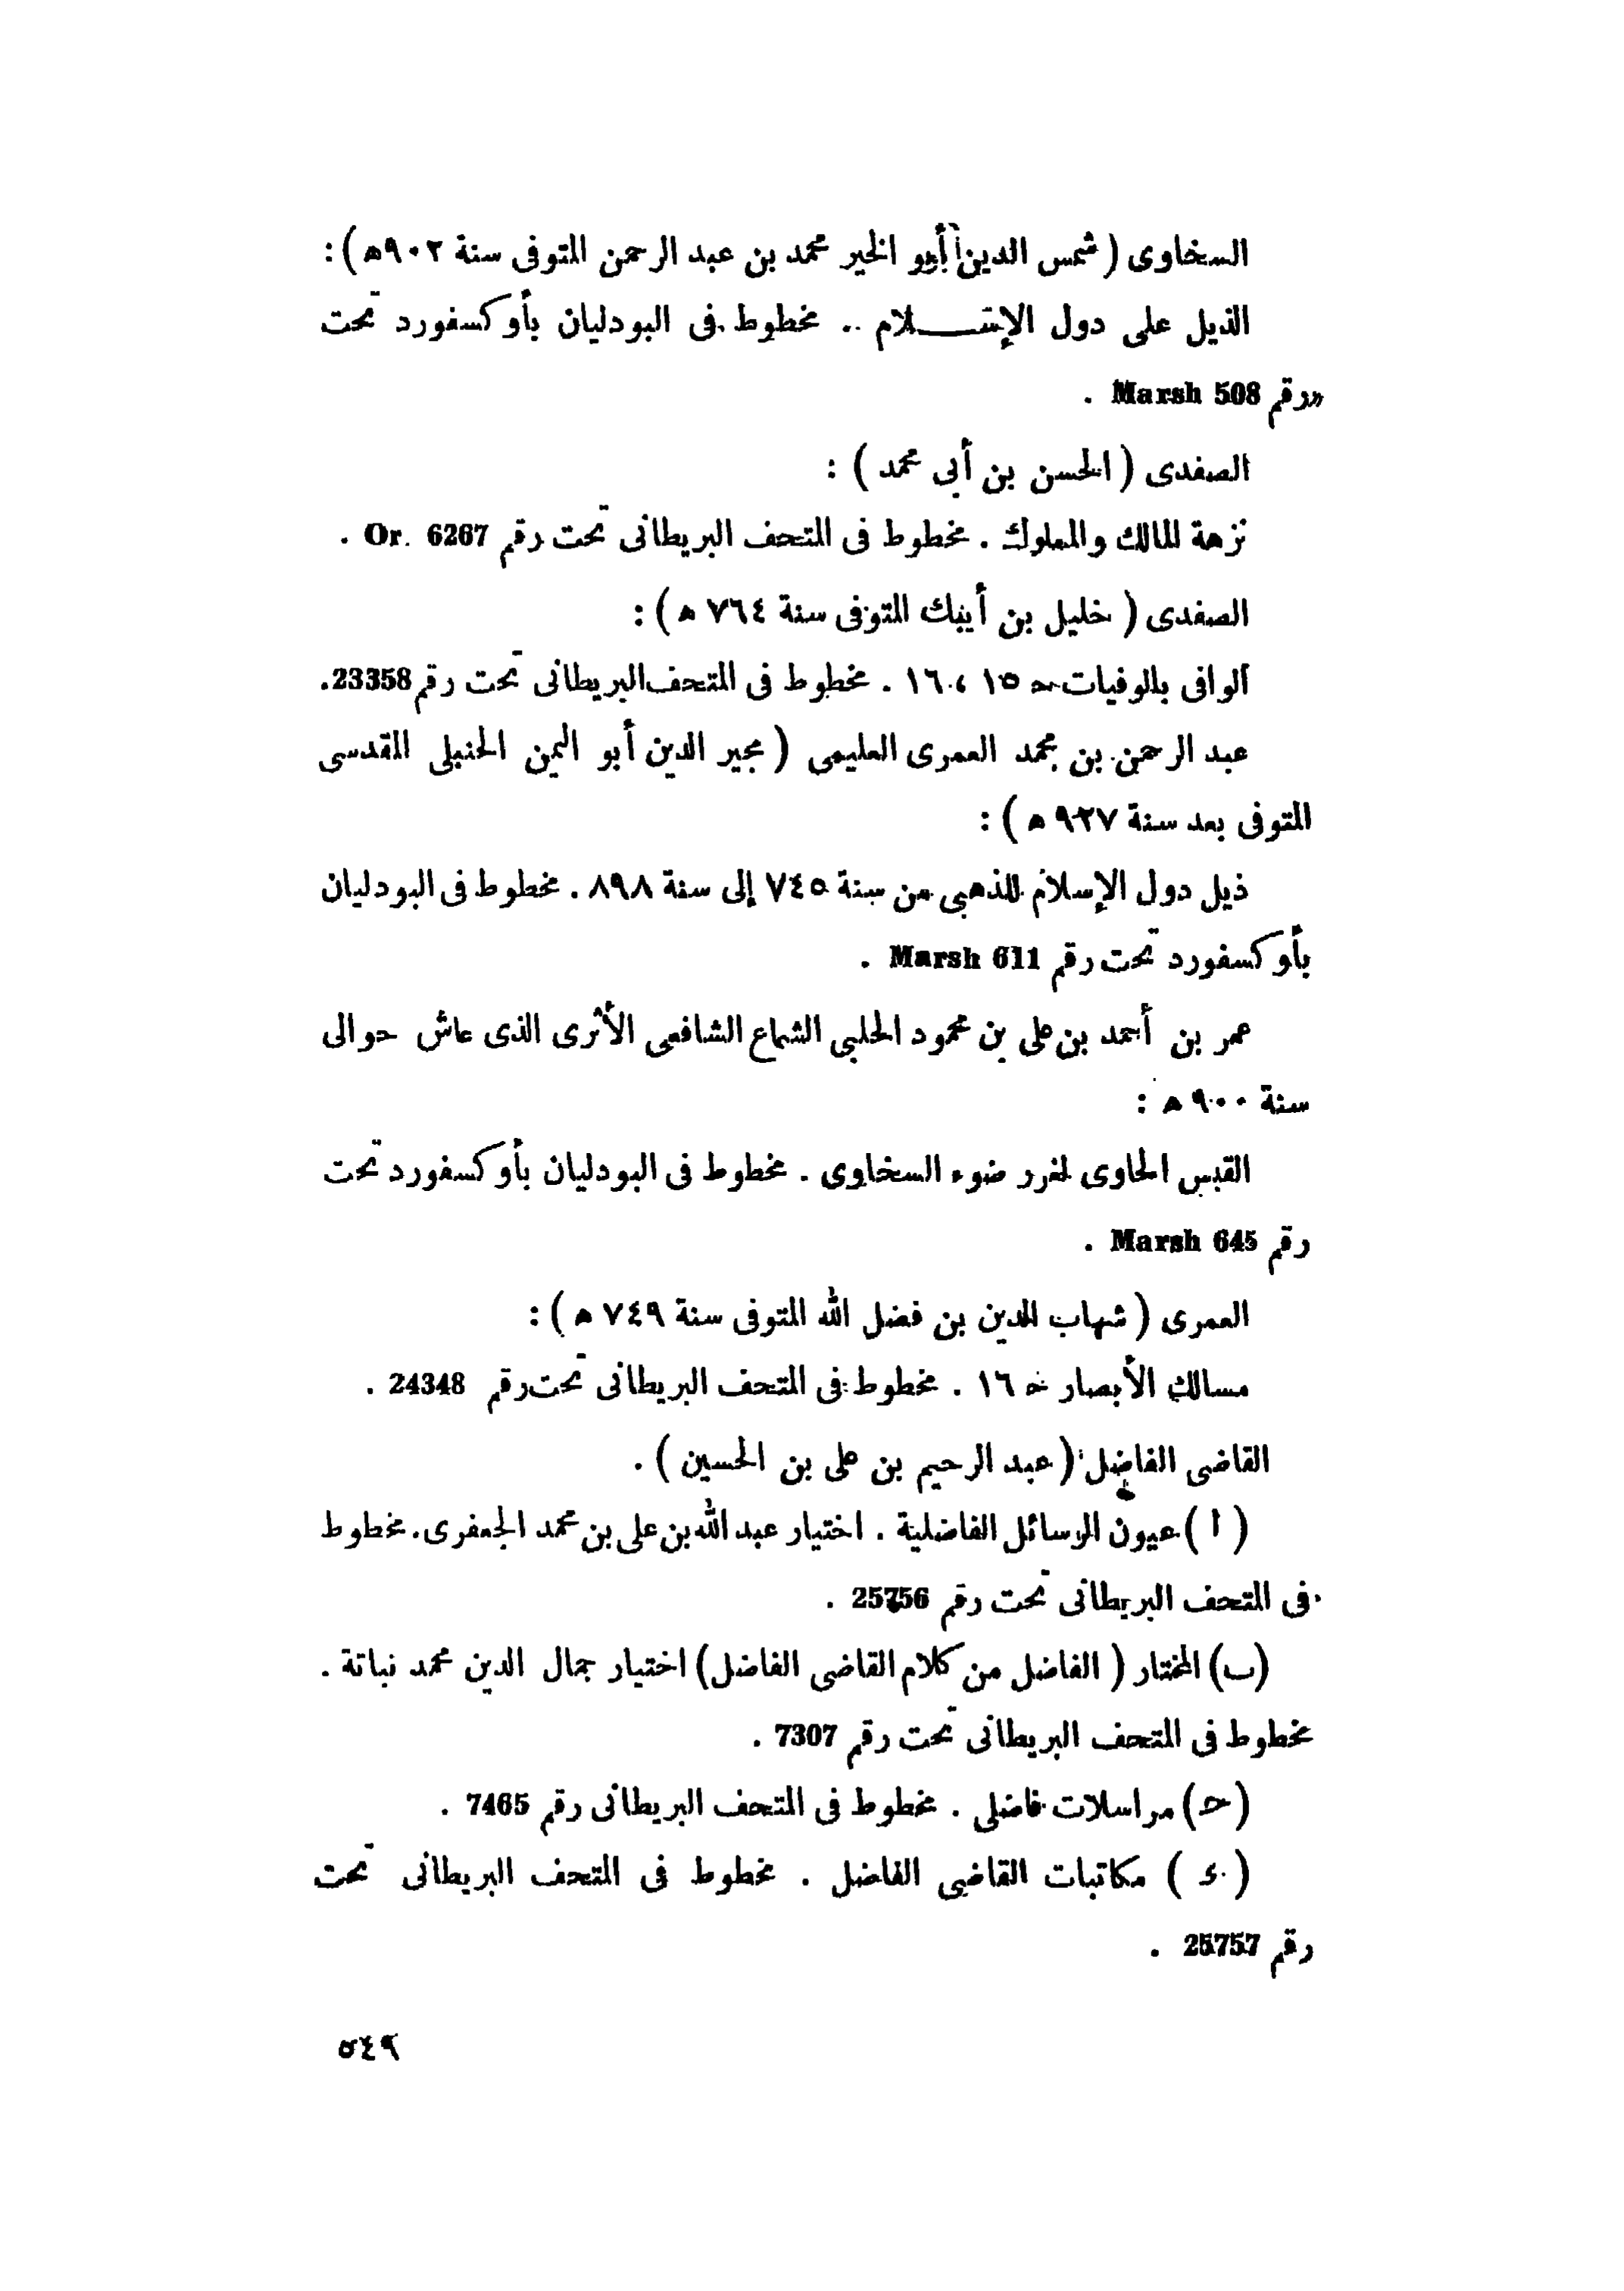 السخاوى ( شمس الدين أبو الخير محمد بن عبد الرحمن المتوفى سنة ٩٠٢ه ) :
الذيل على دول الإسلام .. مخطوط فى البودليان بأوكسفورد تحت
رقم Marsh 508 .
الصفدى ( الحسن بن أبى محمد ) :
نزهة المالك والمملوك . مخطوط فى المتحف البريطانى تحت رقم Or. 6267 .
الصفدى ( خليل بن أيبك المتوفى سنة ٧٦٤ ه ) :
الوافى بالوفيات ح ١٥ ، ١٦ . مخطوط فى المتحف البريطانى تحت رقم 23358.
عبد الرحمن بن محمد العمرى العليمى ( مجير الدين أبو اليمن الحنبلى المقدسى
المتوفى بعد سنة ٩٢٧ ه ) :
ذيل دول الإسلام للذهبى من سنة ٧٤٥ إلى سنة ٨٩٨ . مخطوط فى البودليان
بأوكسفورد تحت رقم Marsh 611 .
عمر بن أحمد بن على بن محمود الحلبى الشماع الشافعى الأثرى الذى عاش حوالى
سنة ٩٠٠ ه :
القبس الحاوى لغرر ضوء السخاوى . مخطوط فى البودليان بأوكسفورد تحت
رقم Marsh 645 .
العمرى ( شهاب الدين بن فضل الله المتوفى سنة ٧٤٩ ه ) :
مسالك الأبصار ح ١٦ . مخطوط فى المتحف البريطانى تحت رقم 24348 .
القاضى الفاضل ( عبد الرحيم بن على بن الحسين ) .
( ا ) عيون الرسائل الفاضلية . اختيار عبد الله بن على بن محمد الجعفرى . مخطوط
فى المتحف البريطانى تحت رقم 25756 .
(ب) المختار ( الفاضل من كلام القاضى الفاضل ) اختيار جمال الدين محمد نباتة .
مخطوط فى المتحف البريطانى تحت رقم 7307 .
(ح) مراسلات فاضلى . مخطوط فى المتحف البريطانى رقم 7465 .
( ء ) مكاتبات القاضى الفاضل . مخطوط فى المتحف البريطانى تحت
رقم 25757 .
٥٤٩